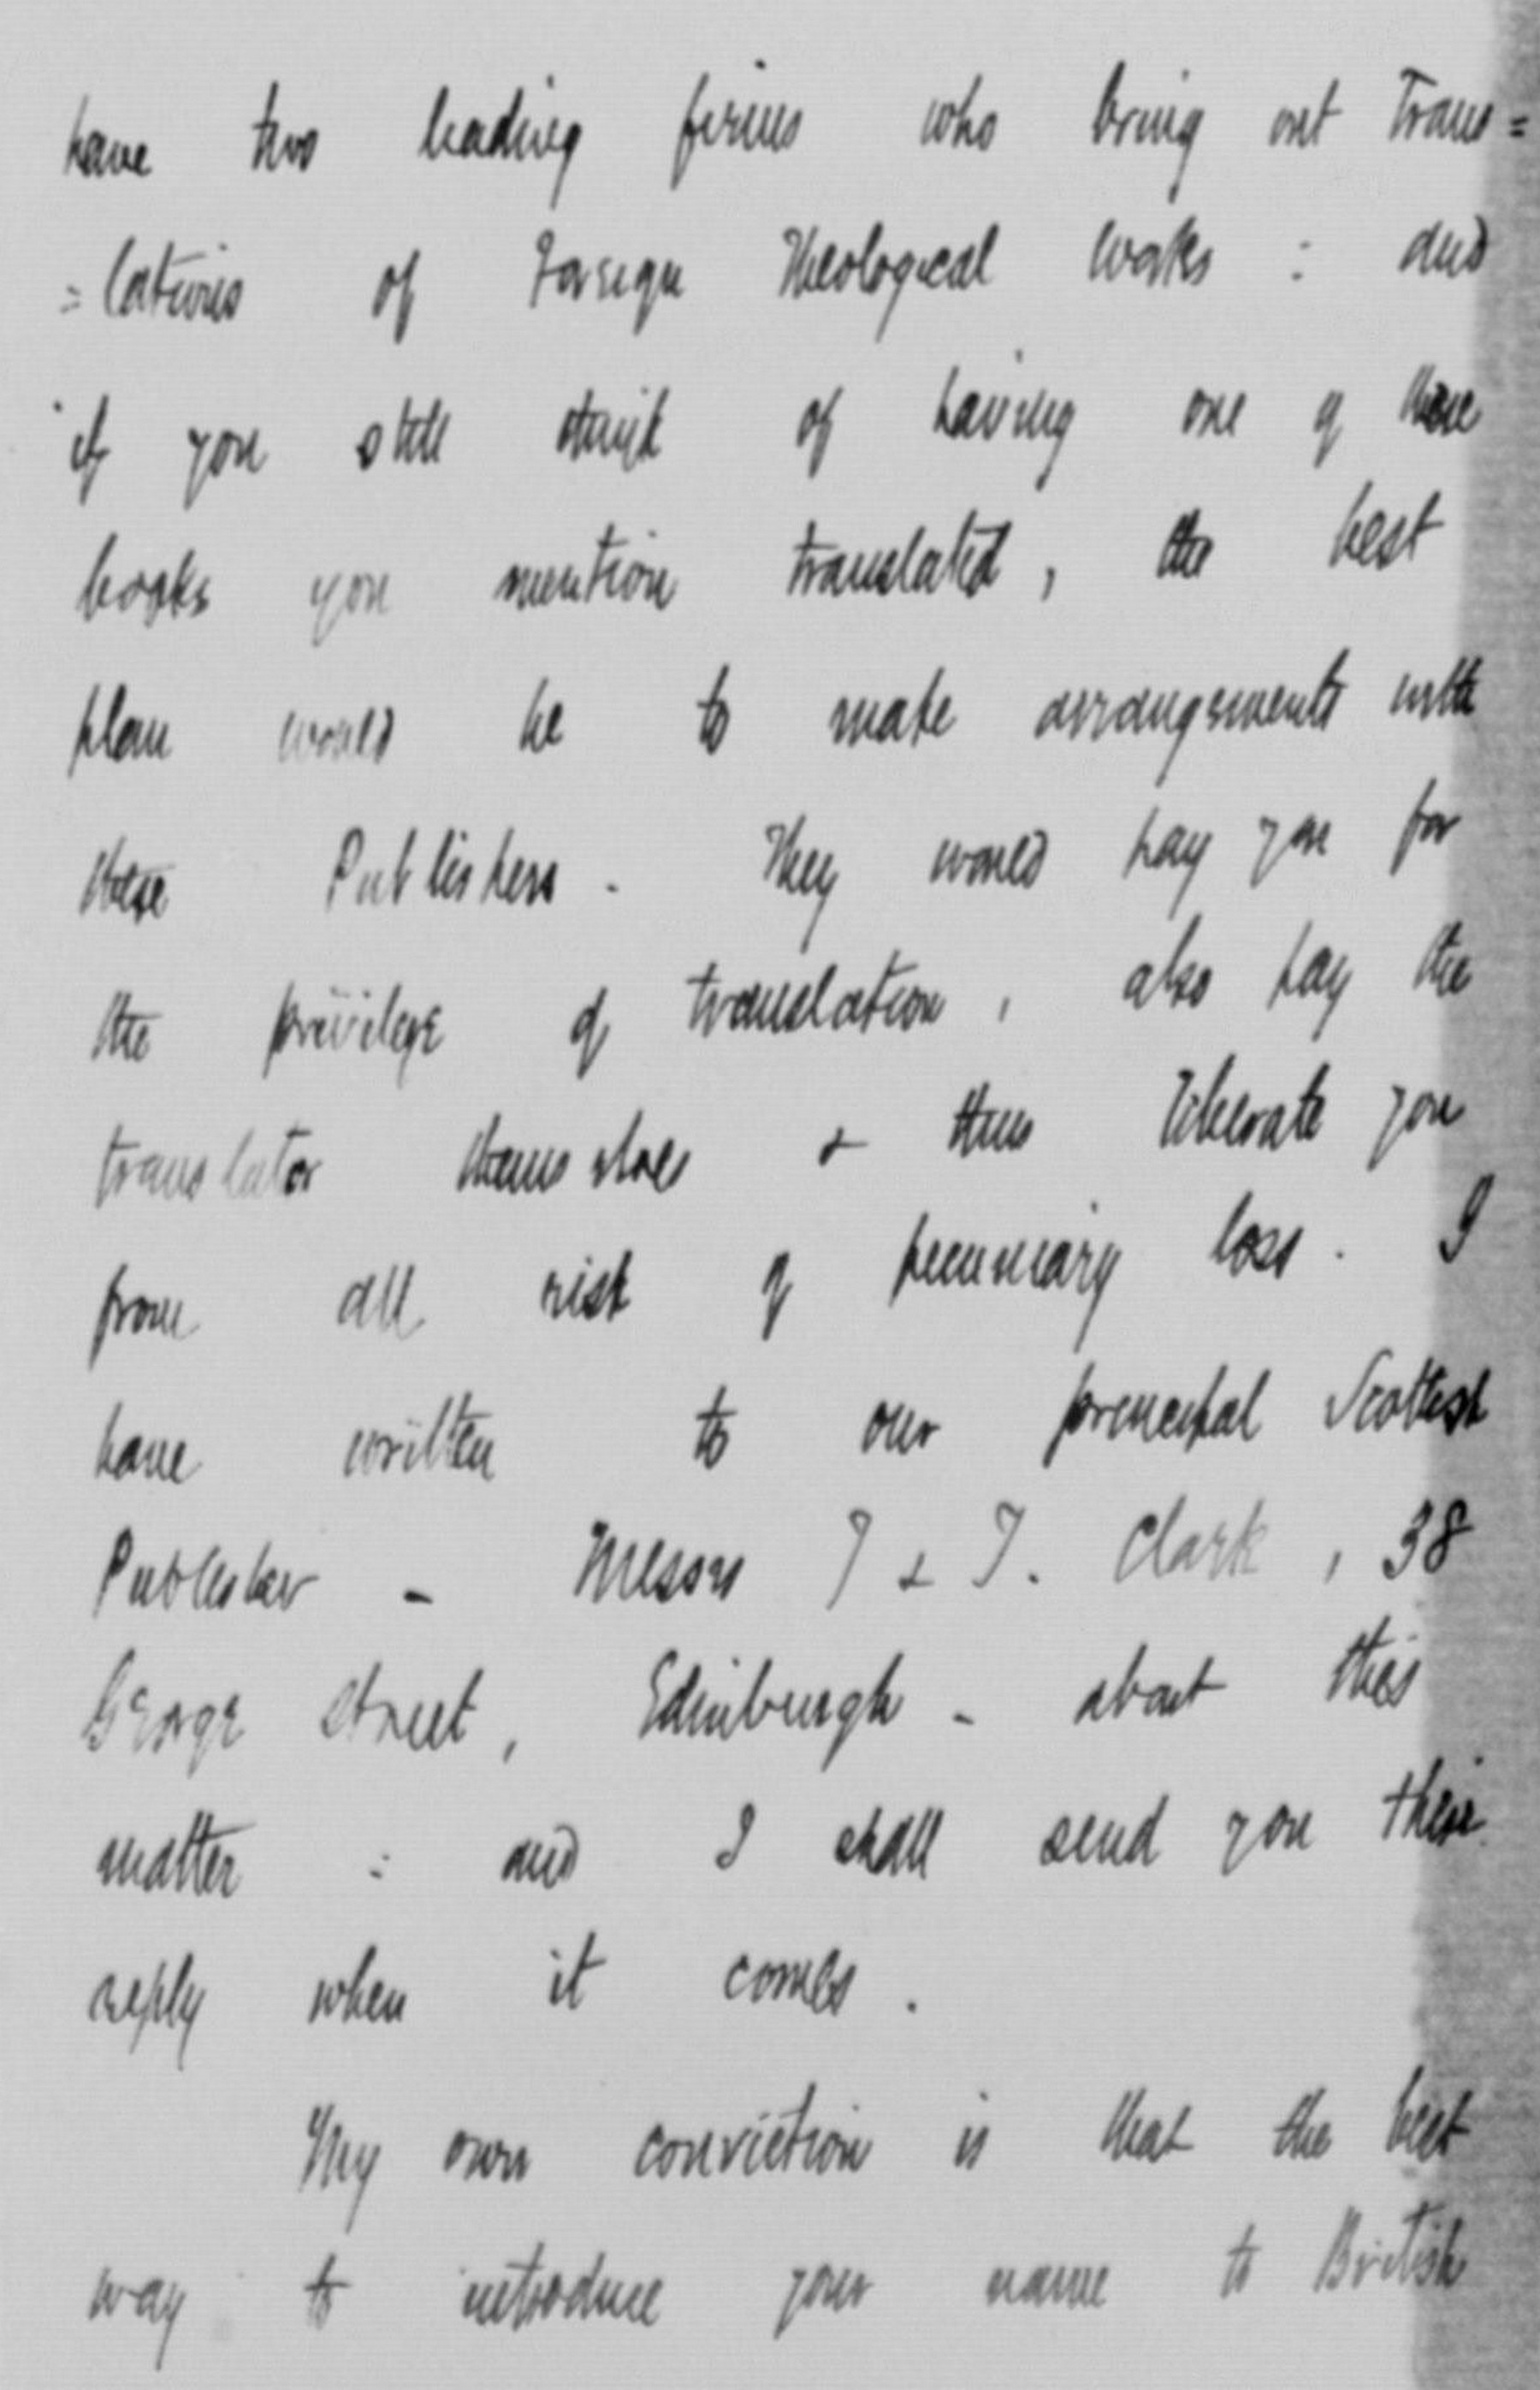 have two leading firms who bring out Trans=
=lations of Foreign Theological works : and
if you still think of having one of these
books you mention translated, the best
plan would be to make arrangements with
these Publishers. They would pay you for
the privilege of translation, also pay the
translator themselves & thus liberate you
from all risk of pecuniary loss. I
have written to our principal Scottish
Publisher - Messrs T & T. Clark, 38
George Street, Edinburgh - about this
matter : and I shall send you their
reply when it comes.
My own conviction is that the best
way to introduce your name to British